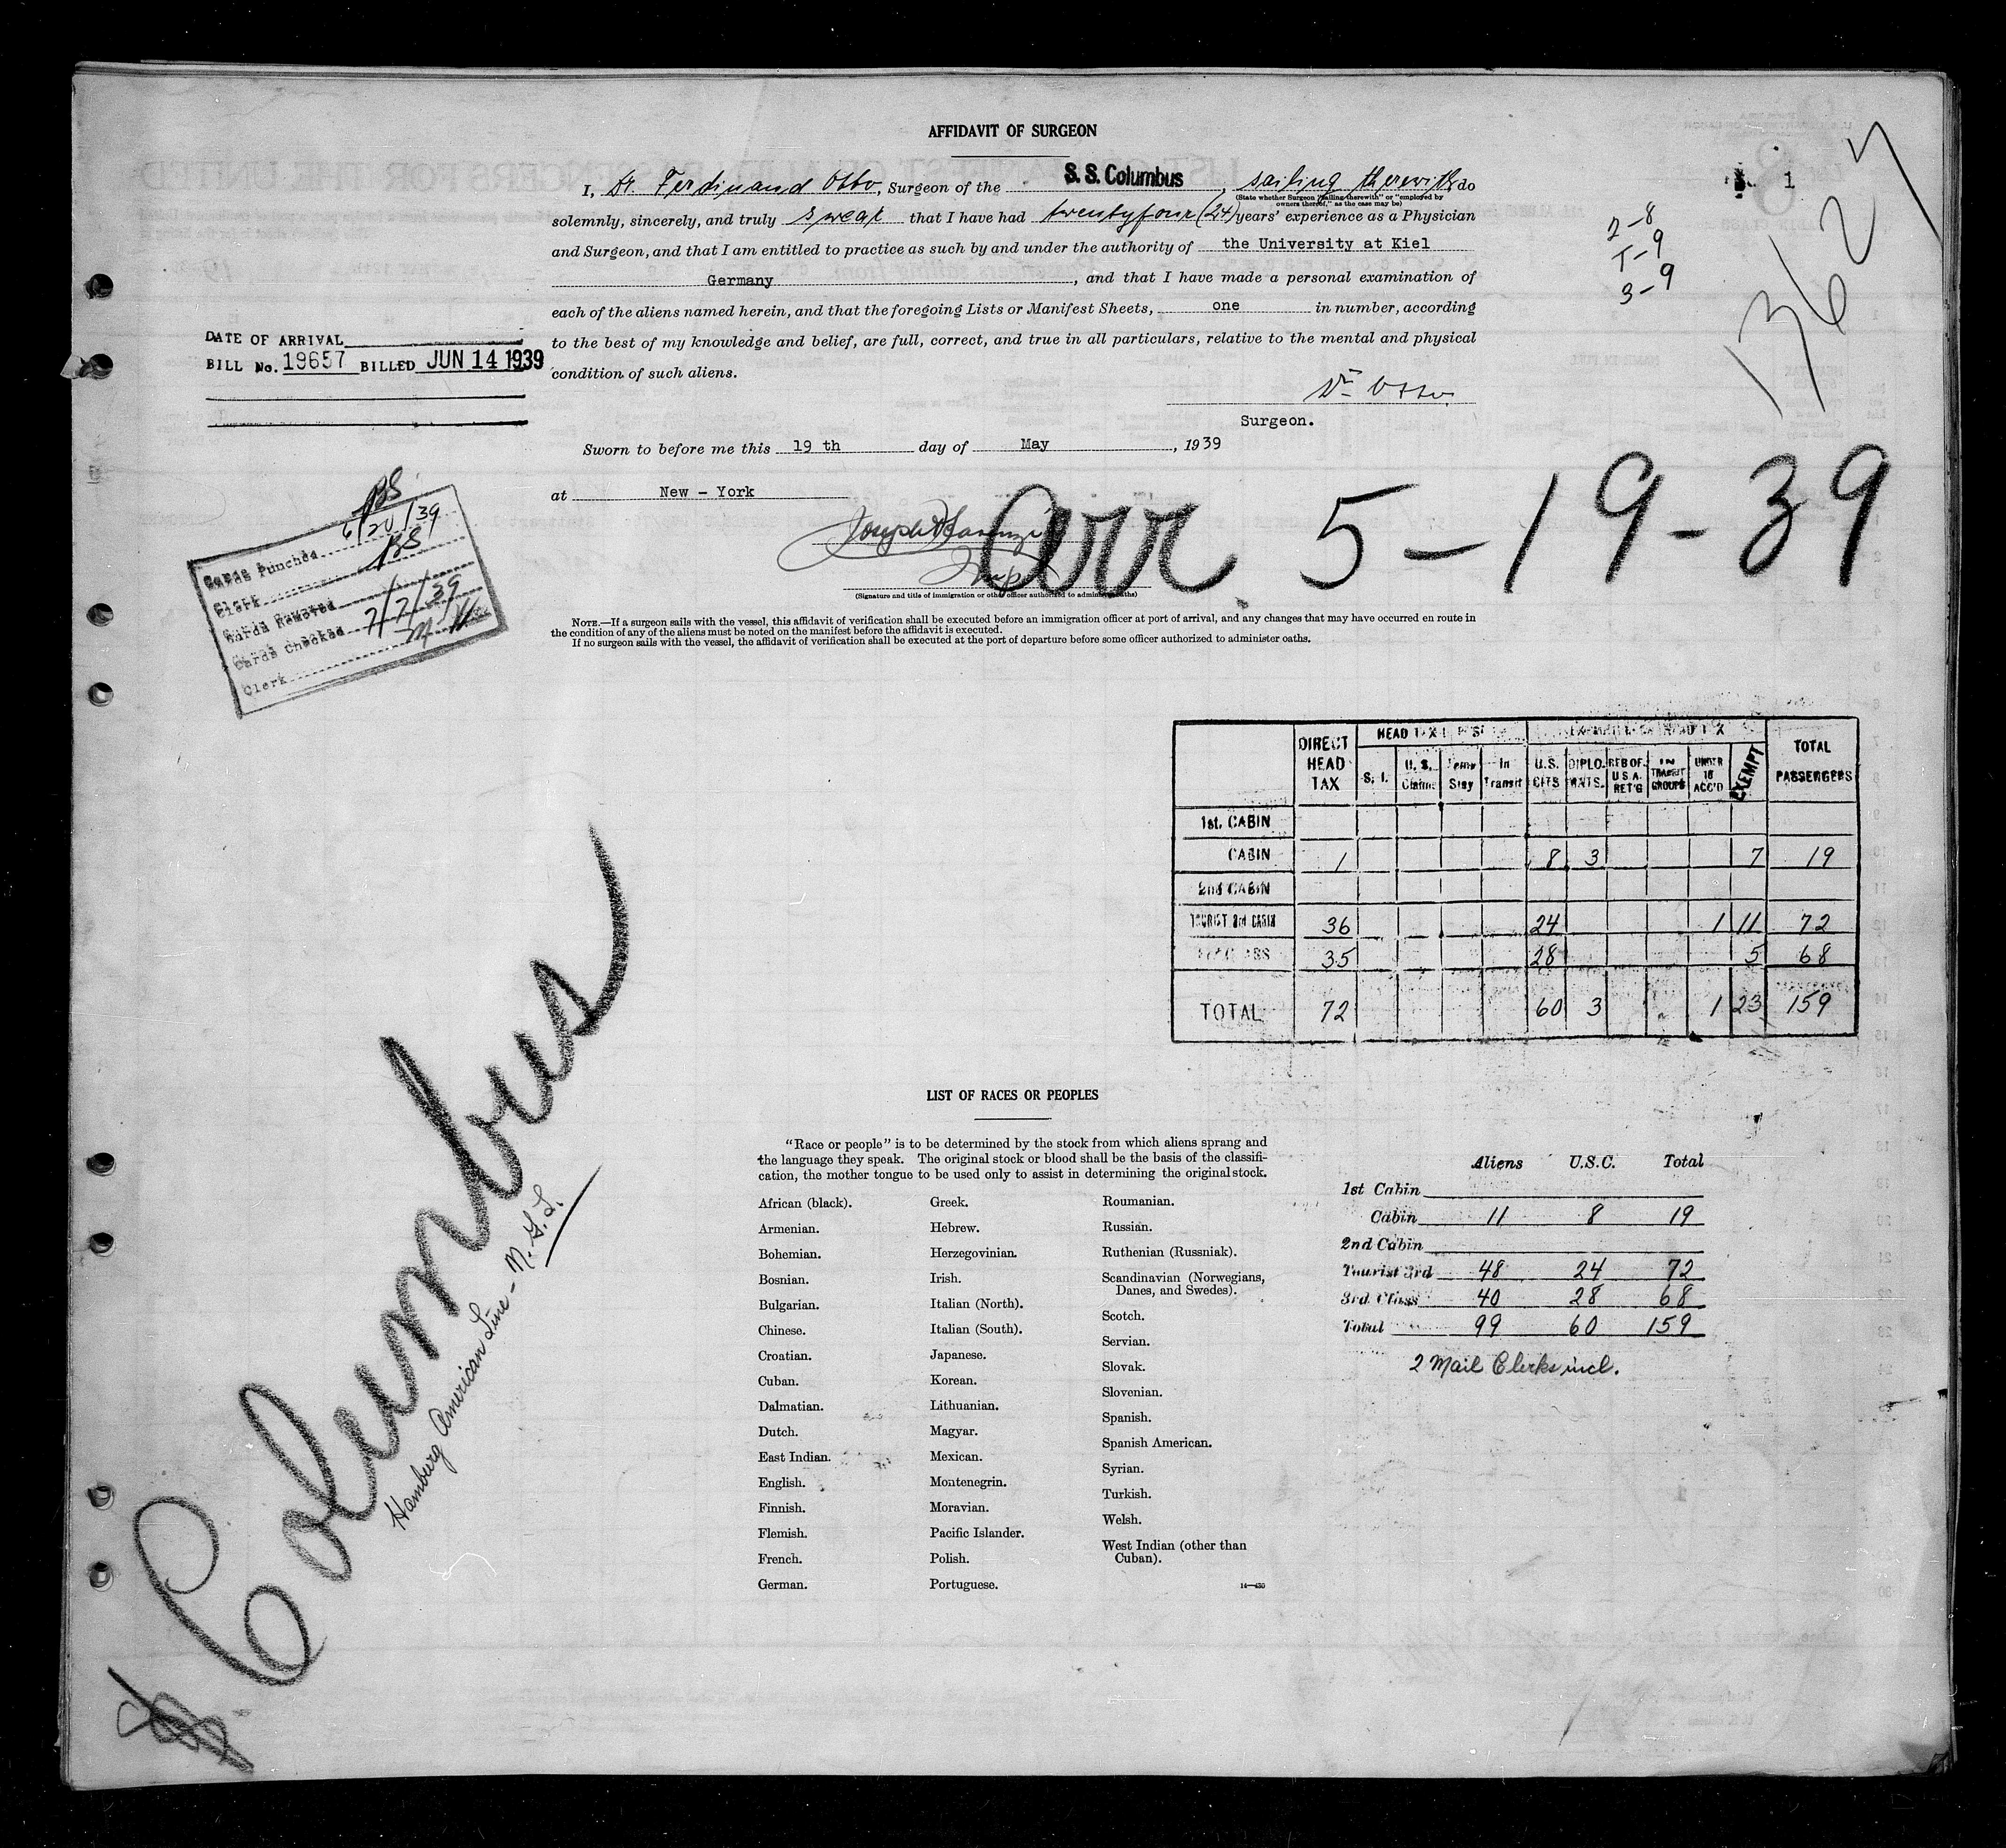 AFFIDAVIT OF SURGEON
I, Dr. Ferdinand Otto, Surgeon of the S. S. Columbus, sailing therewith do
(State whether Surgeon "sailing therewith" or "employed by
owners thereof," as the case may be)
solemnly, sincerely, and truly swear that I have had twentyfour (24) years' experience as a Physician
and Surgeon, and that I am entitled to practice as such by and under the authority of the University at Kiel
Germany, and that I have made a personal examination of
each of the aliens named herein, and that the foregoing Lists or Manifest Sheets, one in number, according
to the best of my knowledge and belief, are full, correct, and true in all particulars, relative to the mental and physical
condition of such aliens.
Dr Otto
Surgeon.
Sworn to before me this 19 th day of May, 1939
at New - York
Joseph
Insp
(Signature and title of immigration or other officer authorized to administer oaths)
NOTE.—If a surgeon sails with the vessel, this affidavit of verification shall be executed before an immigration officer at port of arrival, and any changes that may have occurred en route in
the condition of any of the aliens must be noted on the manifest before the affidavit is executed.
If no surgeon sails with the vessel, the affidavit of verification shall be executed at the port of departure before some officer authorized to administer oaths.
1
2-8
T-9
3-9
13627
Arr. 5-19-39
DATE OF ARRIVAL
BILL No. 19657 BILLED JUN 14 1939
BS
Cards Punched 6/20/39
Clerk BS
Cards Removed
Cards Checked 7/7/39
Clerk
DIRECT HEAD TAX
HEAD TAX
S. I.
U. S. Claim.
Temp Stay
In Transit
U.S. CITS
DIPLOMATS.
REB OF. U S A. RET'G
IN TRANSIT GROUPS
UNDER 16 ACC'D
EXEMPT
TOTAL PASSENGERS
1st. CABIN
CABIN 1 8 3 7 19
2nd CABIN
TOURIST 3rd CABIN 36 24 1 11 72
35 28 5 68
TOTAL 72 60 3 1 23 159
Columbus
Hamburg American Line - N. G. L.
LIST OF RACES OR PEOPLES
"Race or people" is to be determined by the stock from which aliens sprang and
the language they speak. The original stock or blood shall be the basis of the classifi-
cation, the mother tongue to be used only to assist in determining the original stock.
African (black).
Armenian.
Bohemian.
Bosnian.
Bulgarian.
Chinese.
Croatian.
Cuban.
Dalmatian.
Dutch.
East Indian.
English.
Finnish.
Flemish.
French.
German.
Greek.
Hebrew.
Herzegovinian.
Irish.
Italian (North).
Italian (South).
Japanese.
Korean.
Lithuanian.
Magyar.
Mexican.
Montenegrin.
Moravian.
Pacific Islander.
Polish.
Portuguese.
Roumanian.
Russian.
Ruthenian (Russniak).
Scandinavian (Norwegians,
Danes, and Swedes).
Scotch.
Servian.
Slovak.
Slovenian.
Spanish.
Spanish American.
Syrian.
Turkish.
Welsh.
West Indian (other than
Cuban).
14—430
Aliens U.S.C. Total
1st Cabin
Cabin 11 8 19
2nd Cabin
Tourist 3rd 48 24 72
3rd Class 40 28 68
Total 99 60 159
2 Mail Clerks incl.